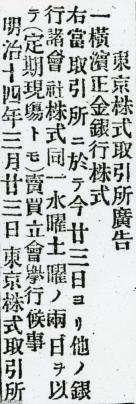 東京株式取引所廣告
一橫濱正金銀行株式
右當取引所ニ於テ今廿三日ヨリ他ノ銀
行諸會社株式同一水曜土曜ノ兩日ヲ以
テ(定期現塲トモ賣買立會擧行候事
明治十四年三月廿三日東京株式取引所